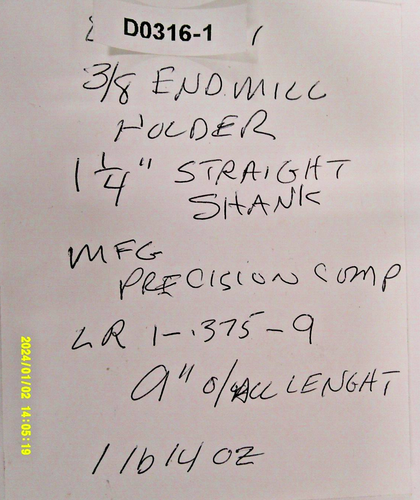 D0316-1
3/8 ENDMILL
HOLDER
1 1/4" STRAIGHT
SHANK
MFG
PRECISION COMP
LR 1-.375-9
9" O/ALL LENGHT
1 lb 14 oz
2024/01/02 14:05:19